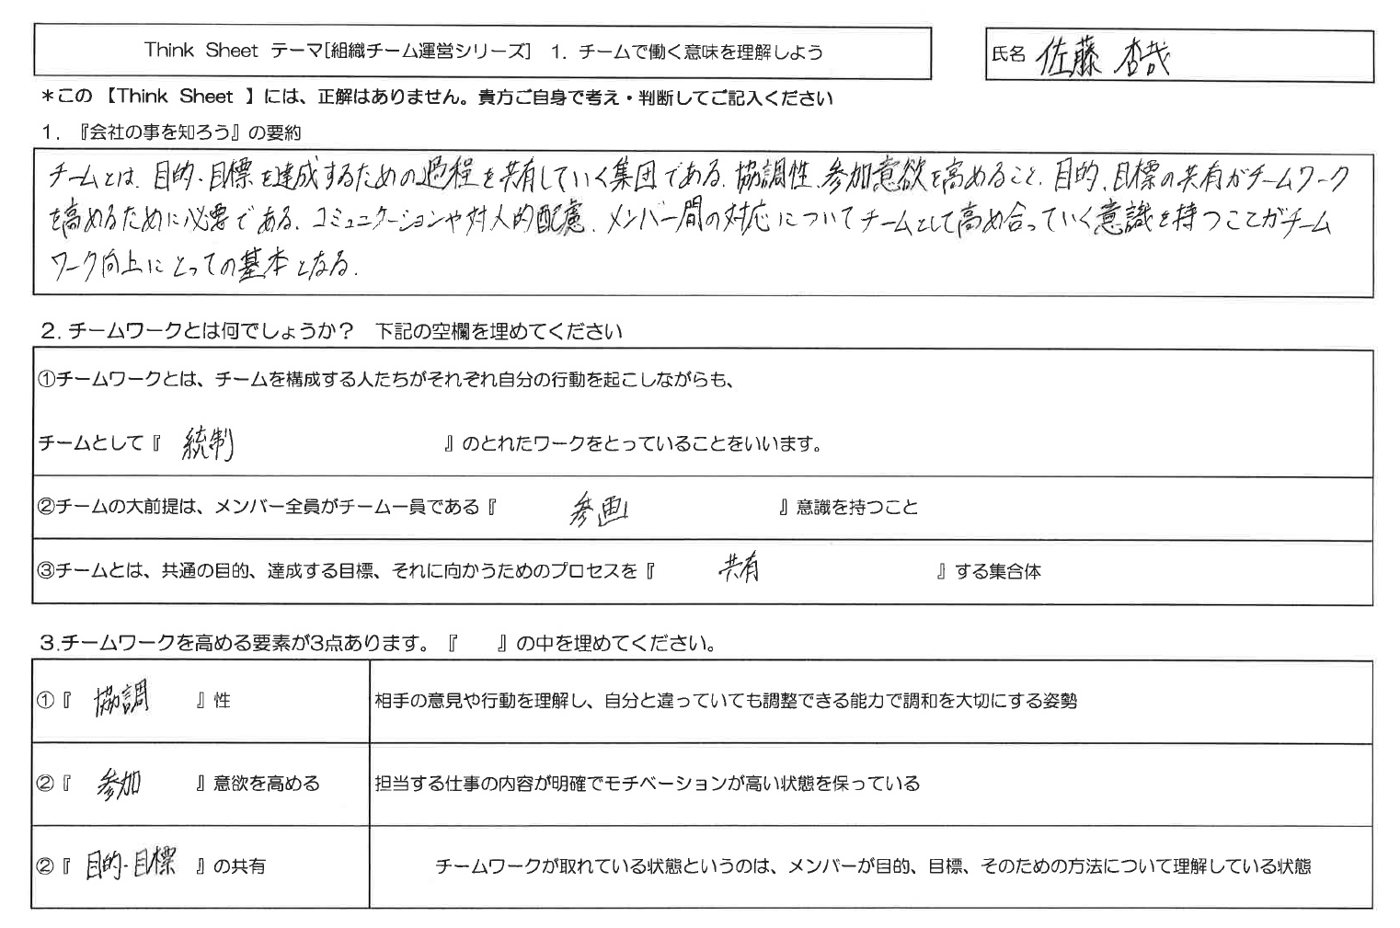 Think Sheet テーマ[組織チーム運営シリーズ] 1．チームで働く意味を理解しよう
氏名 佐藤 杏哉
＊この【Think Sheet 】には、正解はありません。貴方ご自身で考え・判断してご記入ください
1．『会社の事を知ろう』の要約
チームとは、目的・目標を達成するための過程を共有していく集団である。協調性、参加意欲を高めること、目的、目標の共有がチームワーク
を高めるために必要である。コミュニケーションや対人的配慮、メンバー間の対応についてチームとして高め合っていく意識を持つことがチーム
ワーク向上にとっての基本となる。
2．チームワークとは何でしょうか？ 下記の空欄を埋めてください
①チームワークとは、チームを構成する人たちがそれぞれ自分の行動を起こしながらも、
チームとして『 統制 』のとれたワークをとっていることをいいます。
②チームの大前提は、メンバー全員がチーム一員である『 参画 』意識を持つこと
③チームとは、共通の目的、達成する目標、それに向かうためのプロセスを『 共有 』する集合体
3.チームワークを高める要素が3点あります。『 』の中を埋めてください。
①『 協調 』性 相手の意見や行動を理解し、自分と違っていても調整できる能力で調和を大切にする姿勢
②『 参加 』意欲を高める 担当する仕事の内容が明確でモチベーションが高い状態を保っている
②『 目的・目標 』の共有 チームワークが取れている状態というのは、メンバーが目的、目標、そのための方法について理解している状態